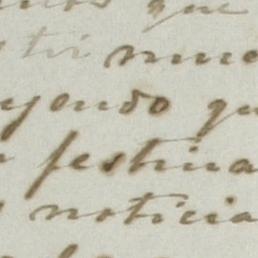 que
tir nunc
yendo qu
festina
noticia